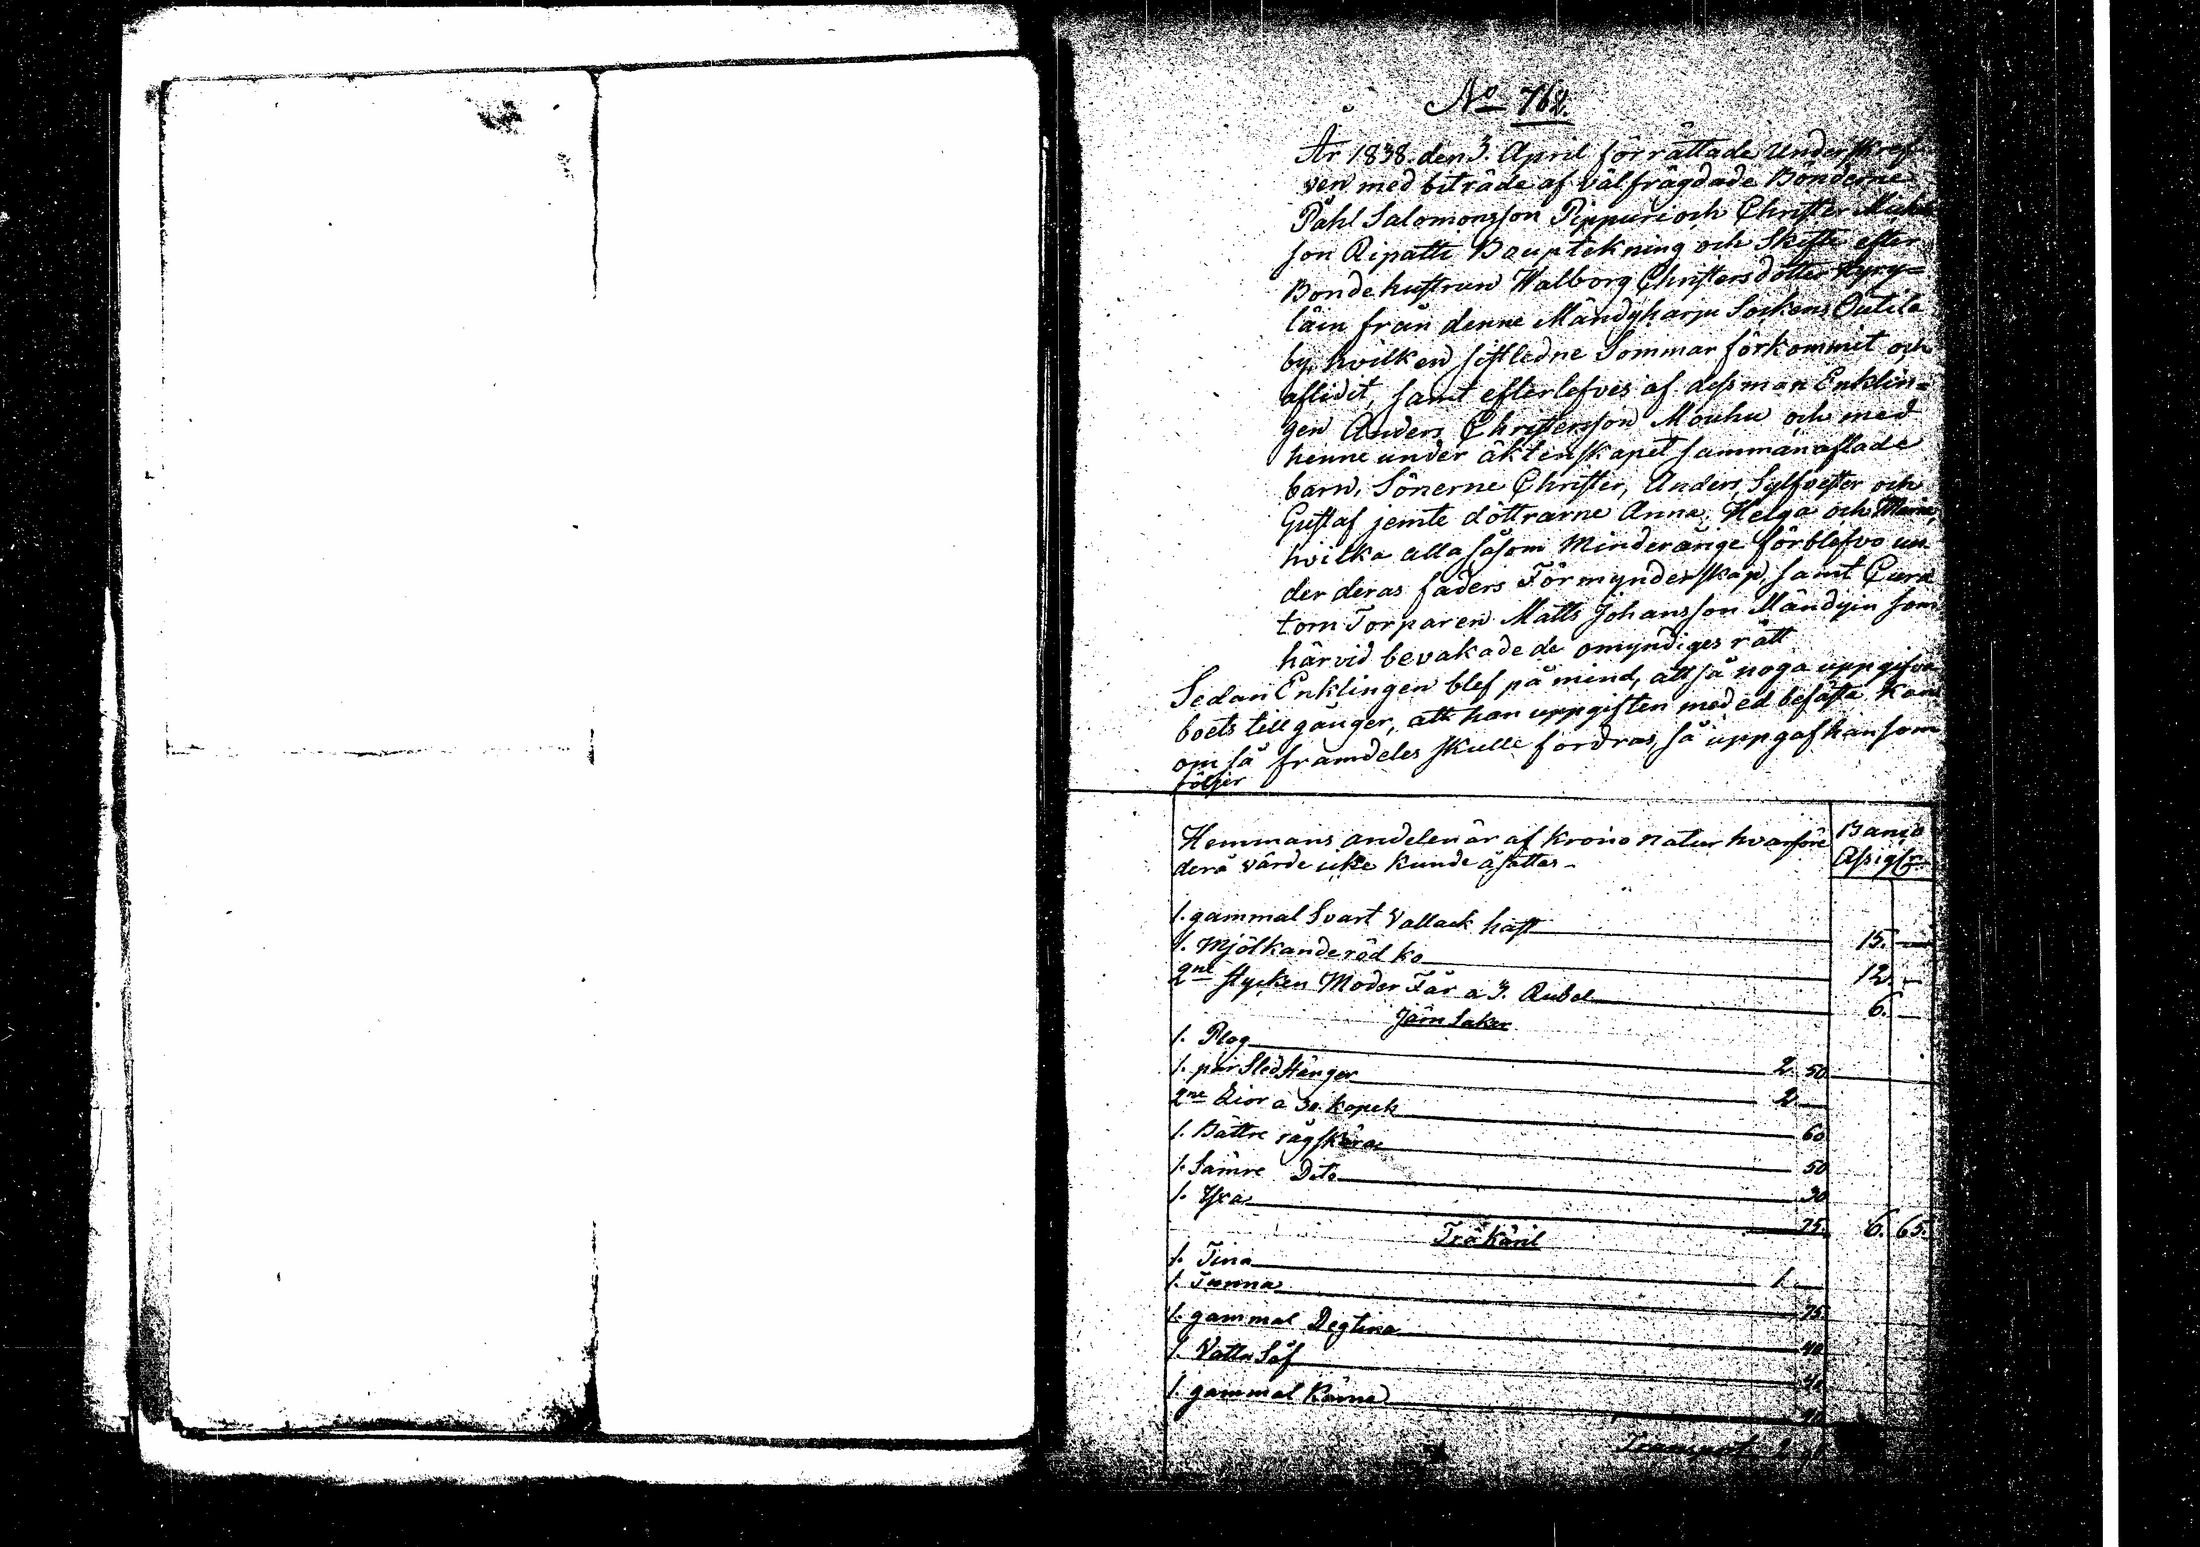 No 762.
År 1838. den 3. April förrättade Underskref
ven med biträde af välfrägdade Bönderne
Påhl Salomonsson Pippuri och Christer Michels
son Ripatti Bouptekning och Skifte efter
Bondehustrun Walborg Christersdotter Kyry=
läin från denne Mändyharju Sockens Outila
by, hvilken sistledne Sommar förkommit och
aflidit, samt efterlefves af dess man Enklin=
gen Anders Christersson Mouhu och med
henne under äktenskapet sammanaflade
barn, Sönerne Christer, Anders, Sylfvester och
Gustaf jemte döttrarne Anna, Helga och Maria,
hvilka alla såsom Minderårige förblefvo un
der deras faders Förmynderskap, samt Cura
torn Torparen Matts Johansson Mändyin som
härvid bevakade de omyndiges rätt
Sedan Enklingen blef påmind, att så noga uppgifva
boets tillgånger, att han uppgiften med ed befästa kan
om så framdeles skulle fordras, så uppgaf han som
följer
Hemmans andelen är af Krono natur hvarföre Banco
derå värde icke kunde åsättas - Assigr
1. gammal Svart Vallack häst 15. —
1. Mjölkande röd ko 12. —
2ne stycken Moder Får a 3. Rubel 6. —
Järn Saker
1. Plog 2. 50
1. par Sledstänger 2. —
2ne Lior a 30. kopek 60
1. Bättre rågskära 50
1. Sämre Dito 30
1. Yxa 75. 6. 65.
Träkäril
1. Tina 1. —
1. Tunna 75.
1. gammal Degtina 40
1. Vattu Så
1. gammal Kärna
Transport 2